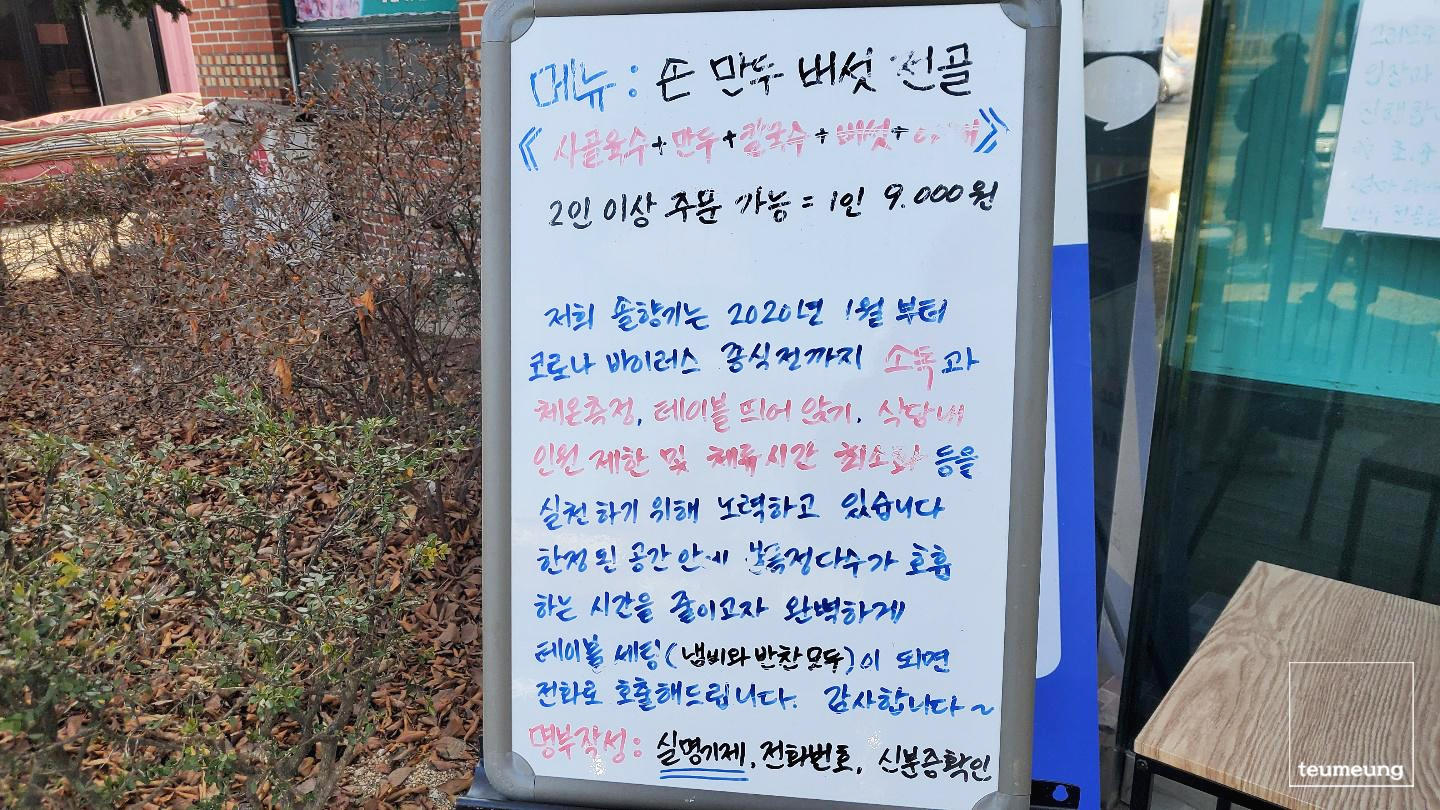 메뉴 : 손 만두 버섯 전골
《 사골육수 + 만두 + 칼국수 + 버섯 + 》
2인 이상 주문 가능 = 1인 9.000원
저희 솔향기는 2020년 1월 부터
코로나 바이러스 종식전까지 소독과
체온측정, 테이블 띄어 앉기, 식당내
인원 제한 및 체류시간 최소화 등을
실천하기 위해 노력하고 있습니다
한정된 공간 안에 불특정다수가 호흡
하는 시간을 줄이고자 완벽하게
테이블 세팅(냄비와 반찬 모두)이 되면
전화로 호출해드립니다. 감사합니다~
명부작성: 실명기제, 전화번호, 신분증확인
teumeung